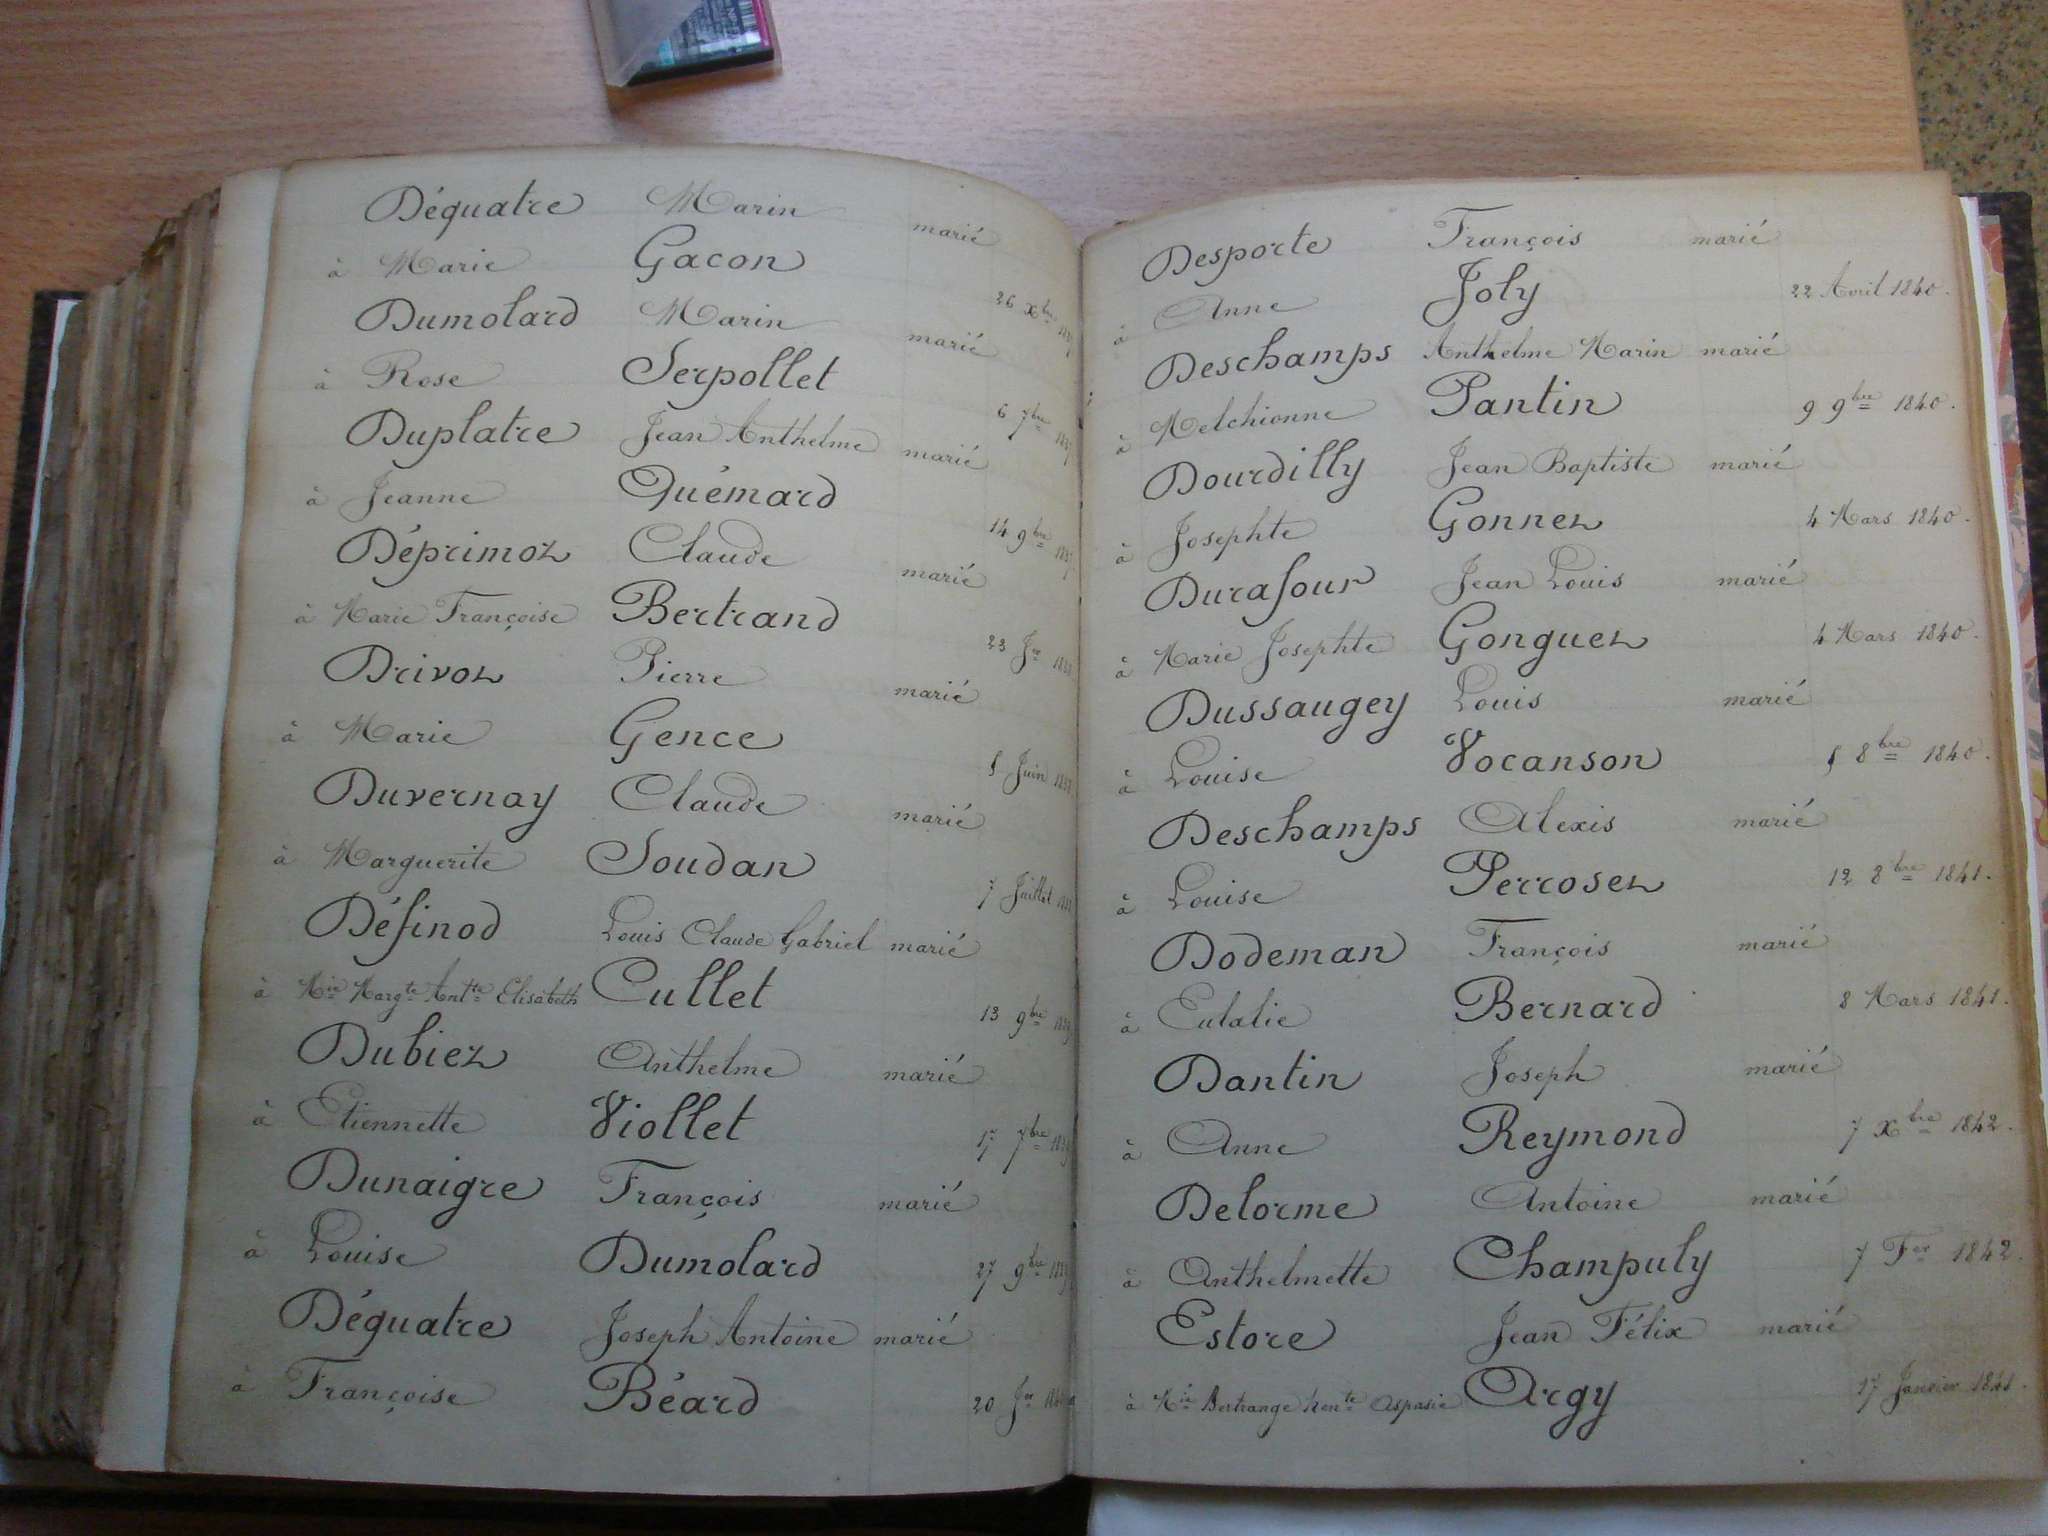 Déquatre Marin marié
à Marie Gacon 26 Xbre
Dumolard Marin marié
à Rose Serpollet 6 7bre
Duplatre Jean Anthelme marié
à Jeanne Quémard 14 9bre
Déprimoz Claude marié
à Marie Françoise Bertrand 23 Jer
Drivoz Pierre marié
à Marie Gence 5 Juin
Duvernay Claude marié
à Marguerite Soudan 7 Juillet
Définod Louis Claude Gabriel marié
à Mie Margte Antte Elisabeth Cullet 13 9bre
Dubiez Anthelme marié
à Etiennette Viollet 17 7bre
Dunaigre François marié
à Louise Dumolard 27 9bre
Déquatre Joseph Antoine marié
à Françoise Béard 20 Jer
Desporte François marié
à Anne Joly 22 Avril 1840.
Deschamps Anthelme Marin marié
à Melchionne Pantin 9 9bre 1840.
Dourdilly Jean Baptiste marié
à Josephte Gonnez 4 Mars 1840.
Durafour Jean Louis marié
à Marie Josephte Gonguez 4 Mars 1840.
Dussaugey Louis marié
à Louise Vocanson 5 8bre 1840.
Deschamps Alexis marié
à Louise Perrosez 12 8bre 1841.
Dodeman François marié
à Eulalie Bernard 8 Mars 1841.
Dantin Joseph marié
à Anne Reymond 7 Xbre 1842.
Delorme Antoine marié
à Anthelmette Champuly 7 Fer 1842.
Estore Jean Félix marié
à Mie Bertrange Aspasie Argy 17 Janvier 1841.